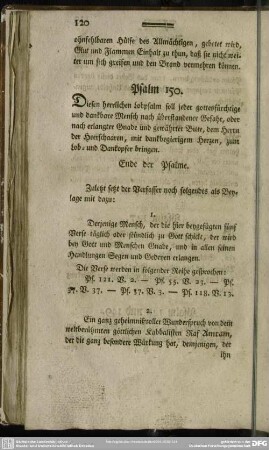 120
ohnfehlbaren Hülfe des Allmächtigen, gebetet wird,
Glut und Flammen Einhalt zu thun, daß sie nicht wei-
ter um sich greifen und den Brand vermehren können.
Psalm 150.
Diesen herrlichen Lobpsalm soll jeder gottesfürchtige
und dankbare Mensch nach überstandener Gefahr, oder
nach erlangter Gnade und gewährter Bitte, dem Herrn
der Heerschaaren, mit dankbegierigem Herzen, zum
Lob- und Dankopfer bringen.
Ende der Psalme.
Zuletzt setzt der Verfasser noch folgendes als Bey-
lage mit dazu:
1.
Derjenige Mensch, der die hier beygefügten fünf
Verse täglich oder stündlich zu Gott schickt, der wird
bey Gott und Menschen Gnade, und in allen seinen
Handlungen Segen und Gedeyen erlangen.
Die Verse werden in folgender Reihe gesprochen:
Ps. 121. V. 2. — Ps. 55. V. 23. — Ps.
V. 37. — Ps. 37. V. 3. — Ps. 118. V. 13.
2.
Ein ganz geheimnißvoller Wunderspruch von dem
weltberühmten göttlichen Kabbalisten Raf Amram,
der die ganz besondere Würkung hat, demjenigen, der
ihn